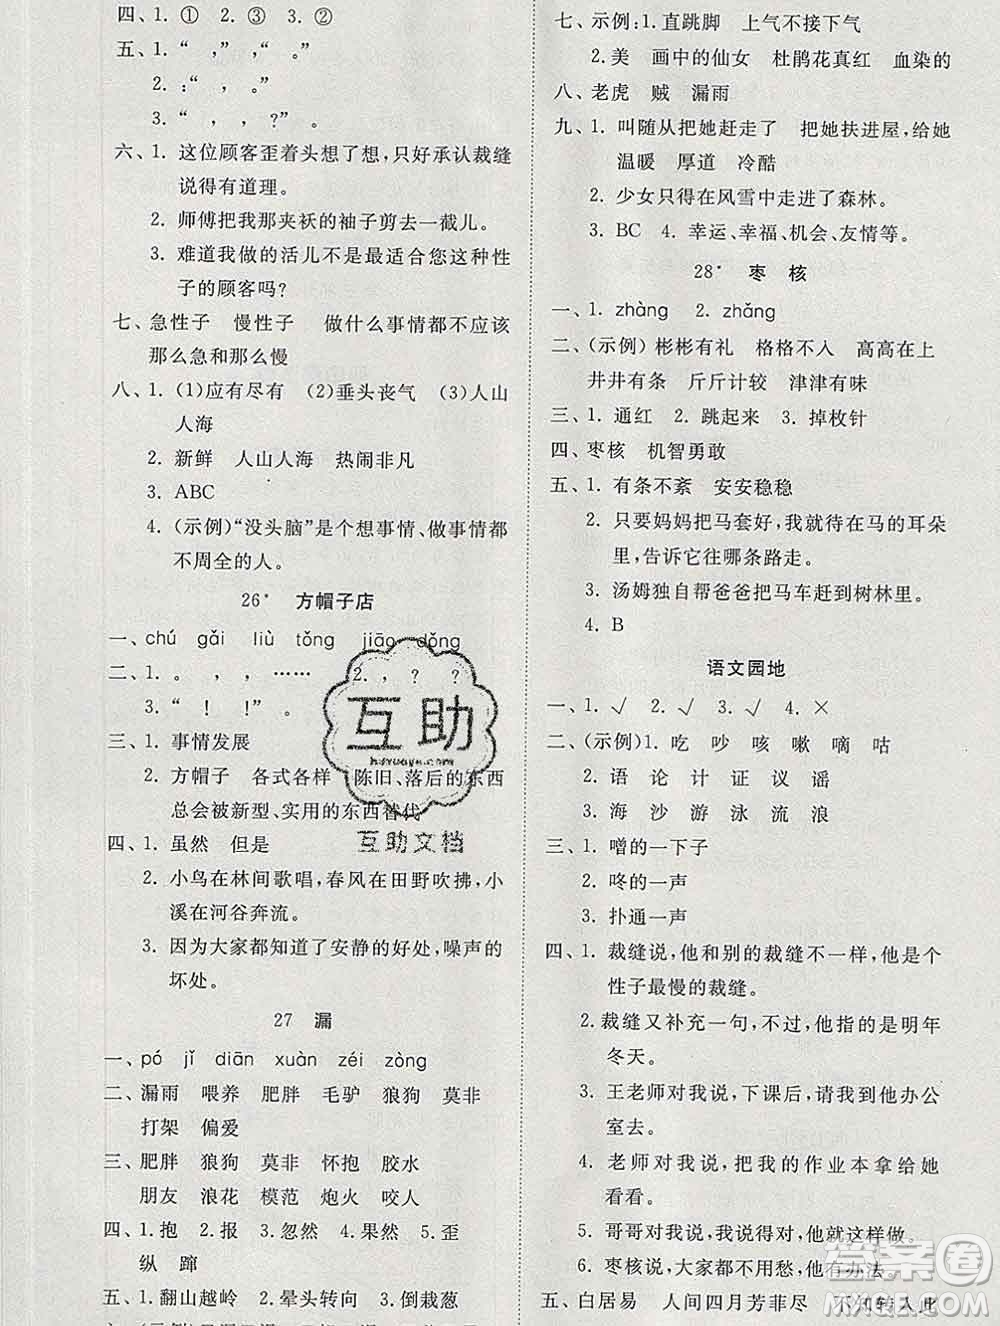 四、1. ① 2. ③ 3. ②
五、1. “ ，”，“ 。”
2. ：“ ， 。”
3. “ ， ， ？” 。
六、1. 这位顾客歪着头想了想，只好承认裁缝
说得有道理。
2. 师傅把我那夹袄的袖子剪去一截儿。
3. 难道我做的活儿可能适合您这种性
子的顾客吗？
七、急性子 慢性子 做什么事情都不应该
那么急和那么慢
八、1. (1)应有尽有 (2)垂头丧气 (3)人山
人海
2. 新鲜 人山人海 热闹非凡
3. ABC
4. (示例)“没头脑”是个想事情、做事情都
不周全的人。
26* 方帽子店
一、chú gǎi liù tǒng jiāo dǒng
二、1. 。 ， …… 2. ， ？ ？
3. “ ！ ！” 。
三、1. 事情发展
2. 方帽子 各式各样 陈旧、落后的东西
总会被新型、实用的东西替代
四、1. 虽然 但是
2. 小鸟在林间歌唱，春风在田野吹拂，小
溪在河谷奔流。
3. 因为大家都知道了安静的好处，噪声的
坏处。
27 漏
一、pó jǐ diān xuàn zéi zòng
二、漏雨 喂养 肥胖 毛驴 狼狗 莫非
打架 偏爱
三、肥胖 狼狗 莫非 怀抱 胶水
朋友 浪花 模范 炮火 咬人
四、1. 抱 2. 报 3. 忽然 4. 果然 5. 歪
纵 蹿
五、1. 翻山越岭 2. 晕头转向 3. 倒栽葱
七、示例：1. 直跳脚 上气不接下气
2. 美 画中的仙女 杜鹃花真红 血染的
八、老虎 贼 漏雨
九、1. 叫随从把她赶走了 把她扶进屋，给她
温暖 厚道 冷酷
2. 少女只得在风雪中走进了森林。
3. BC 4. 幸运、幸福、机会、友情等。
28* 枣 核
一、1. zhàng 2. zhǎng
二、(示例)彬彬有礼 格格不入 高高在上
井井有条 斤斤计较 津津有味
三、1. 通红 2. 跳起来 3. 掉枚针
四、枣核 机智勇敢
五、1. 有条不紊 安安稳稳
2. 只要妈妈把马套好，我就待在马的耳朵
里，告诉它往哪条路走。
3. 汤姆独自帮爸爸把马车赶到树林里。
4. B
语文园地
一、1. √ 2. √ 3. √ 4. ×
二、(示例)1. 吃 吵 咳 嗽 嘀 咕
2. 语 论 计 证 议 谣
3. 海 沙 游 泳 流 浪
三、1. 噌的一下子
2. 咚的一声
3. 扑通一声
四、1. 裁缝说，他和别的裁缝不一样，他是个
性子最慢的裁缝。
2. 裁缝又补充一句，不过，他指的是明年
冬天。
3. 王老师对我说，下课后，请我到他办公
室去。
4. 老师对我说，把我的作业本拿给她
看看。
5. 哥哥对我说，我说得对，他就这样做。
6. 枣核说，大家都不用愁，他有办法。
五、白居易 人间四月芳菲尽 不知转入此
互助
互助文档
答案圈